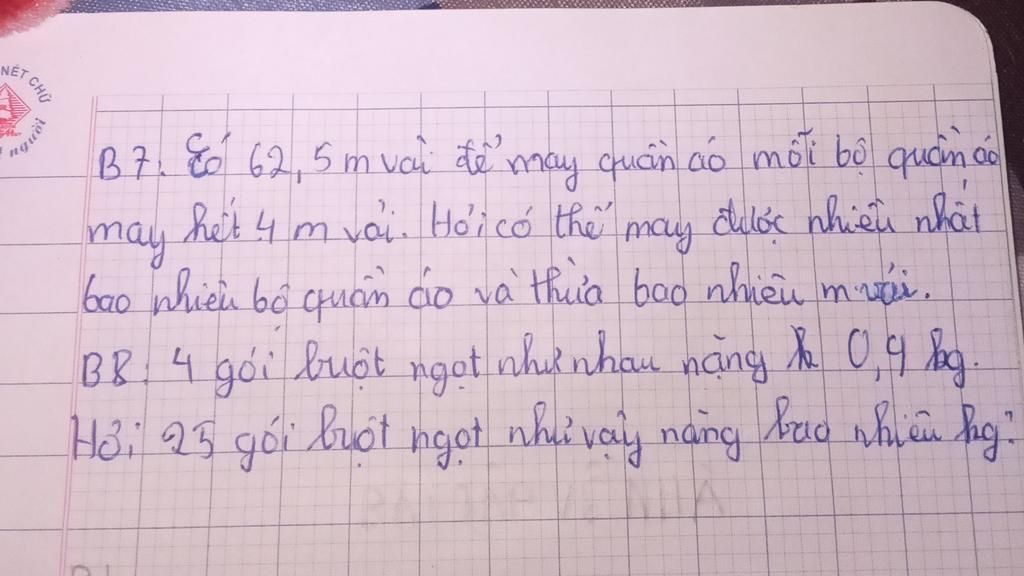 NÉT CHỮ
người
B7. Có 62,5 m vải để may quần áo mỗi bộ quần áo
may hết 4 m vải. Hỏi có thể may được nhiều nhất
bao nhiêu bộ quần áo và thừa bao nhiêu m vải.
B8. 4 gói bột ngọt như nhau nặng 0,4 kg.
Hỏi 25 gói bột ngọt như vậy nặng bao nhiêu kg?